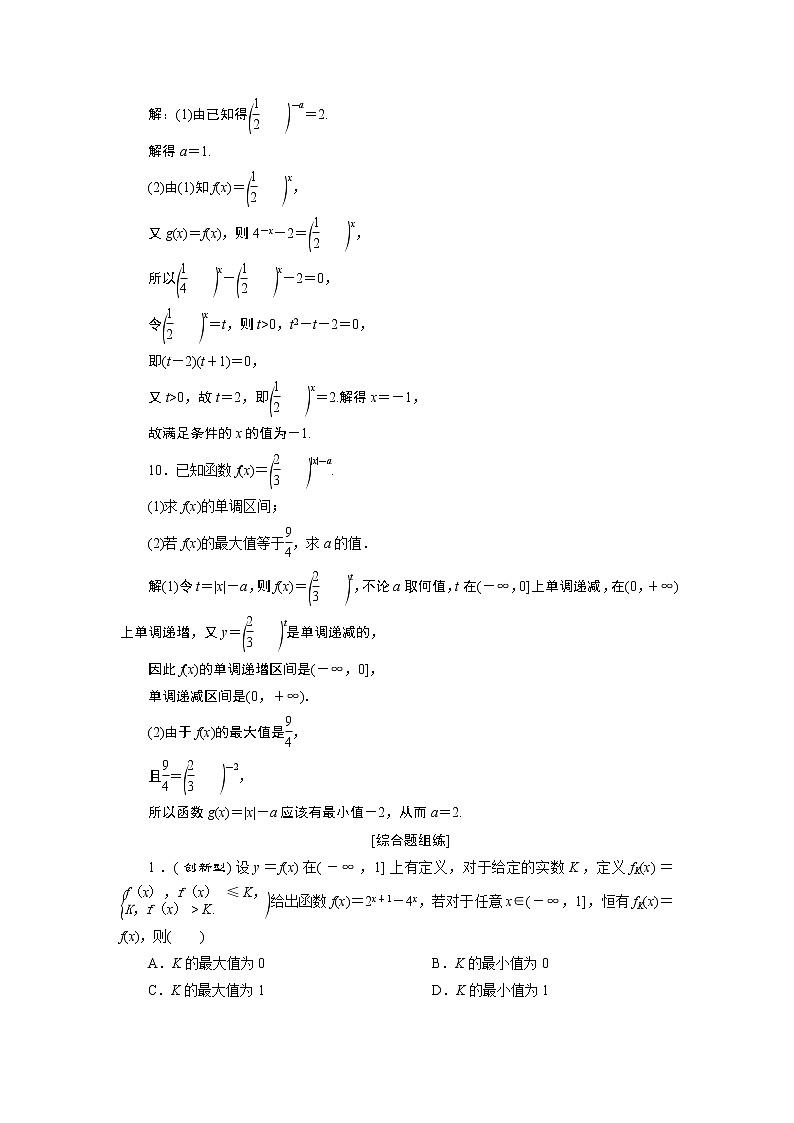 解：(1)由已知得(1/2)^(－a)＝2.
解得 a＝1.
(2)由(1)知 f(x)＝(1/2)^x，
又 g(x)＝f(x)，则 4^(－x)－2＝(1/2)^x，
所以(1/4)^x－(1/2)^x－2＝0，
令(1/2)^x＝t，则 t>0，t²－t－2＝0，
即(t－2)(t＋1)＝0，
又 t>0，故 t＝2，即(1/2)^x＝2.解得 x＝－1，
故满足条件的 x 的值为－1.
10．已知函数 f(x)＝(2/3)^(|x|－a).
(1)求 f(x)的单调区间；
(2)若 f(x)的最大值等于9/4，求 a 的值．
解(1)令 t＝|x|－a，则 f(x)＝(2/3)^t，不论 a 取何值，t 在(－∞，0]上单调递减，在(0，＋∞)
上单调递增，又 y＝(2/3)^t是单调递减的，
因此 f(x)的单调递增区间是(－∞，0]，
单调递减区间是(0，＋∞)．
(2)由于 f(x)的最大值是9/4，
且9/4＝(2/3)^(－2)，
所以函数 g(x)＝|x|－a 应该有最小值－2，从而 a＝2.
[综合题组练]
1．(创新型)设 y＝f(x)在(－∞，1]上有定义，对于给定的实数 K，定义 f_K(x)＝
{f（x），f（x）≤K，K，f（x）＞K.)给出函数 f(x)＝2^(x＋1)－4^x，若对于任意 x∈(－∞，1]，恒有 f_K(x)＝
f(x)，则(　　)
A．K 的最大值为 0　　B．K 的最小值为 0
C．K 的最大值为 1　　D．K 的最小值为 1